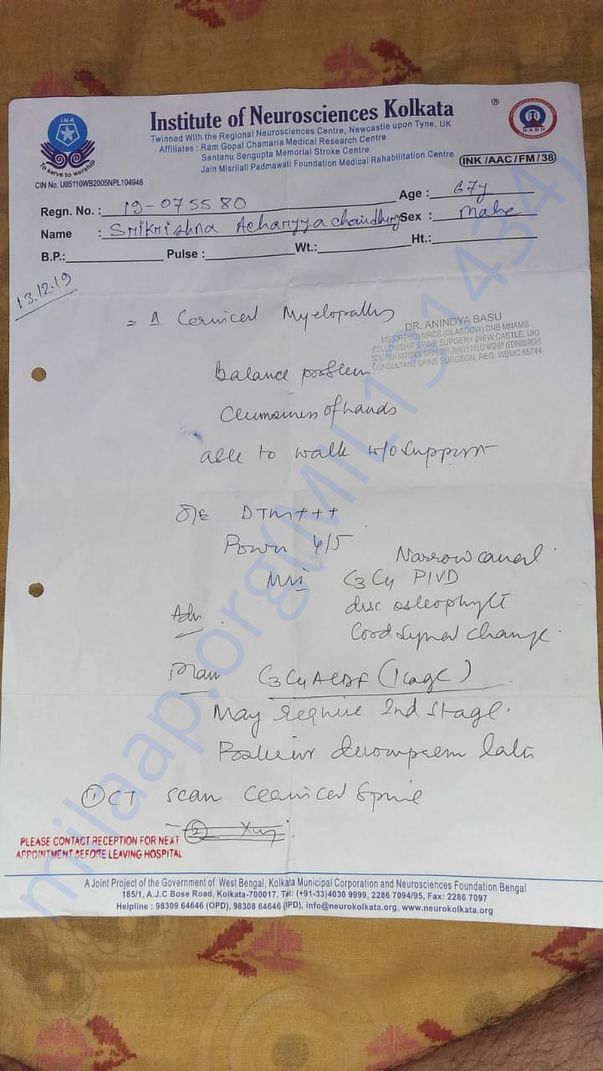 INK
To serve to worship
Institute of Neurosciences Kolkata
®
Twinned With the Regional Neurosciences Centre, Newcastle upon Tyne, UK
Affiliates : Ram Gopal Chamaria Medical Research Centre
Santanu Sengupta Memorial Stroke Centre
Jain Misrilall Padmawati Foundation Medical Rehabilitation Centre
INK /AAC / FM / 38
CIN No. U85110WB2005NPL104948
Regn. No. : 19-075580
Age : 67y
Name : Srikrishna Acharyya chaudhury
Sex : Male
B.P.: Pulse : Wt.: Ht.:
13.12.19
Cervical Myelopathy
DR. ANINDYA BASU
MS(ORTHO) MRCS (GLASGOW) DNB MNAMS
FELLOWSHIP SPINE SURGERY (NEW CASTLE, UK)
CONSULTANT SPINE SURGEON, REG: WBMC 65744
Balance problem
Clumsiness of hands
able to walk w/o support
O/E DTR+++
Power 4/5
Narrow canal
MRI C3C4 PIVD
Adv.
disc osteophyte
Cord signal change.
Plan C3C4 ACDF (1 cage)
May require 2nd stage.
Posterior decompression later
① CT scan Cervical Spine
② Xray
PLEASE CONTACT RECEPTION FOR NEXT
APPOINTMENT BEFORE LEAVING HOSPITAL
A Joint Project of the Government of West Bengal, Kolkata Municipal Corporation and Neurosciences Foundation Bengal
185/1, A.J.C Bose Road, Kolkata-700017, Tel: (+91-33)4030 9999, 2286 7094/95, Fax: 2286 7097
Helpline : 98309 64646 (OPD), 98308 64646 (IPD), info@neurokolkata.org, www.neurokolkata.org